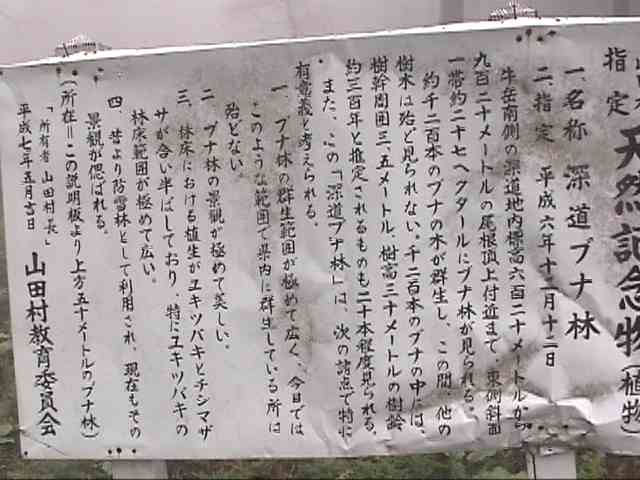 指定 天然記念物(植物)
一、名称 深道ブナ林
二、指定 平成六年十一月十二日
牛岳南側の深道地内標高六百二十メートルから
九百二十メートルの尾根頂上付近まで、東側斜面
一帯約二十七ヘクタールにブナ林が見られる。
約千二百本のブナの木が群生し、この間、他の
樹木は殆ど見られない。千二百本のブナの中には、
樹幹周囲三.五メートル、樹高三十メートルの樹齢
約三百年と推定されるものも二十本程度見られる。
また、この「深道ブナ林」は、次の諸点で特に
有意義と考えられる。
一 ブナ林の群生範囲が極めて広く、今日では
このような範囲で県内に群生している所は
殆どない
二 ブナ林の景観が極めて美しい。
三、林床における植生がユキツバキとチシマザ
サが合い半ばしており、特にユキツバキの
林床範囲が極めて広い。
四、昔より防雪林として利用され、現在もその
景観が偲ばれる。
(所在=この説明板より上方五十メートルのブナ林)
「所有者 山田村長」
平成七年五月吉日 山田村教育委員会